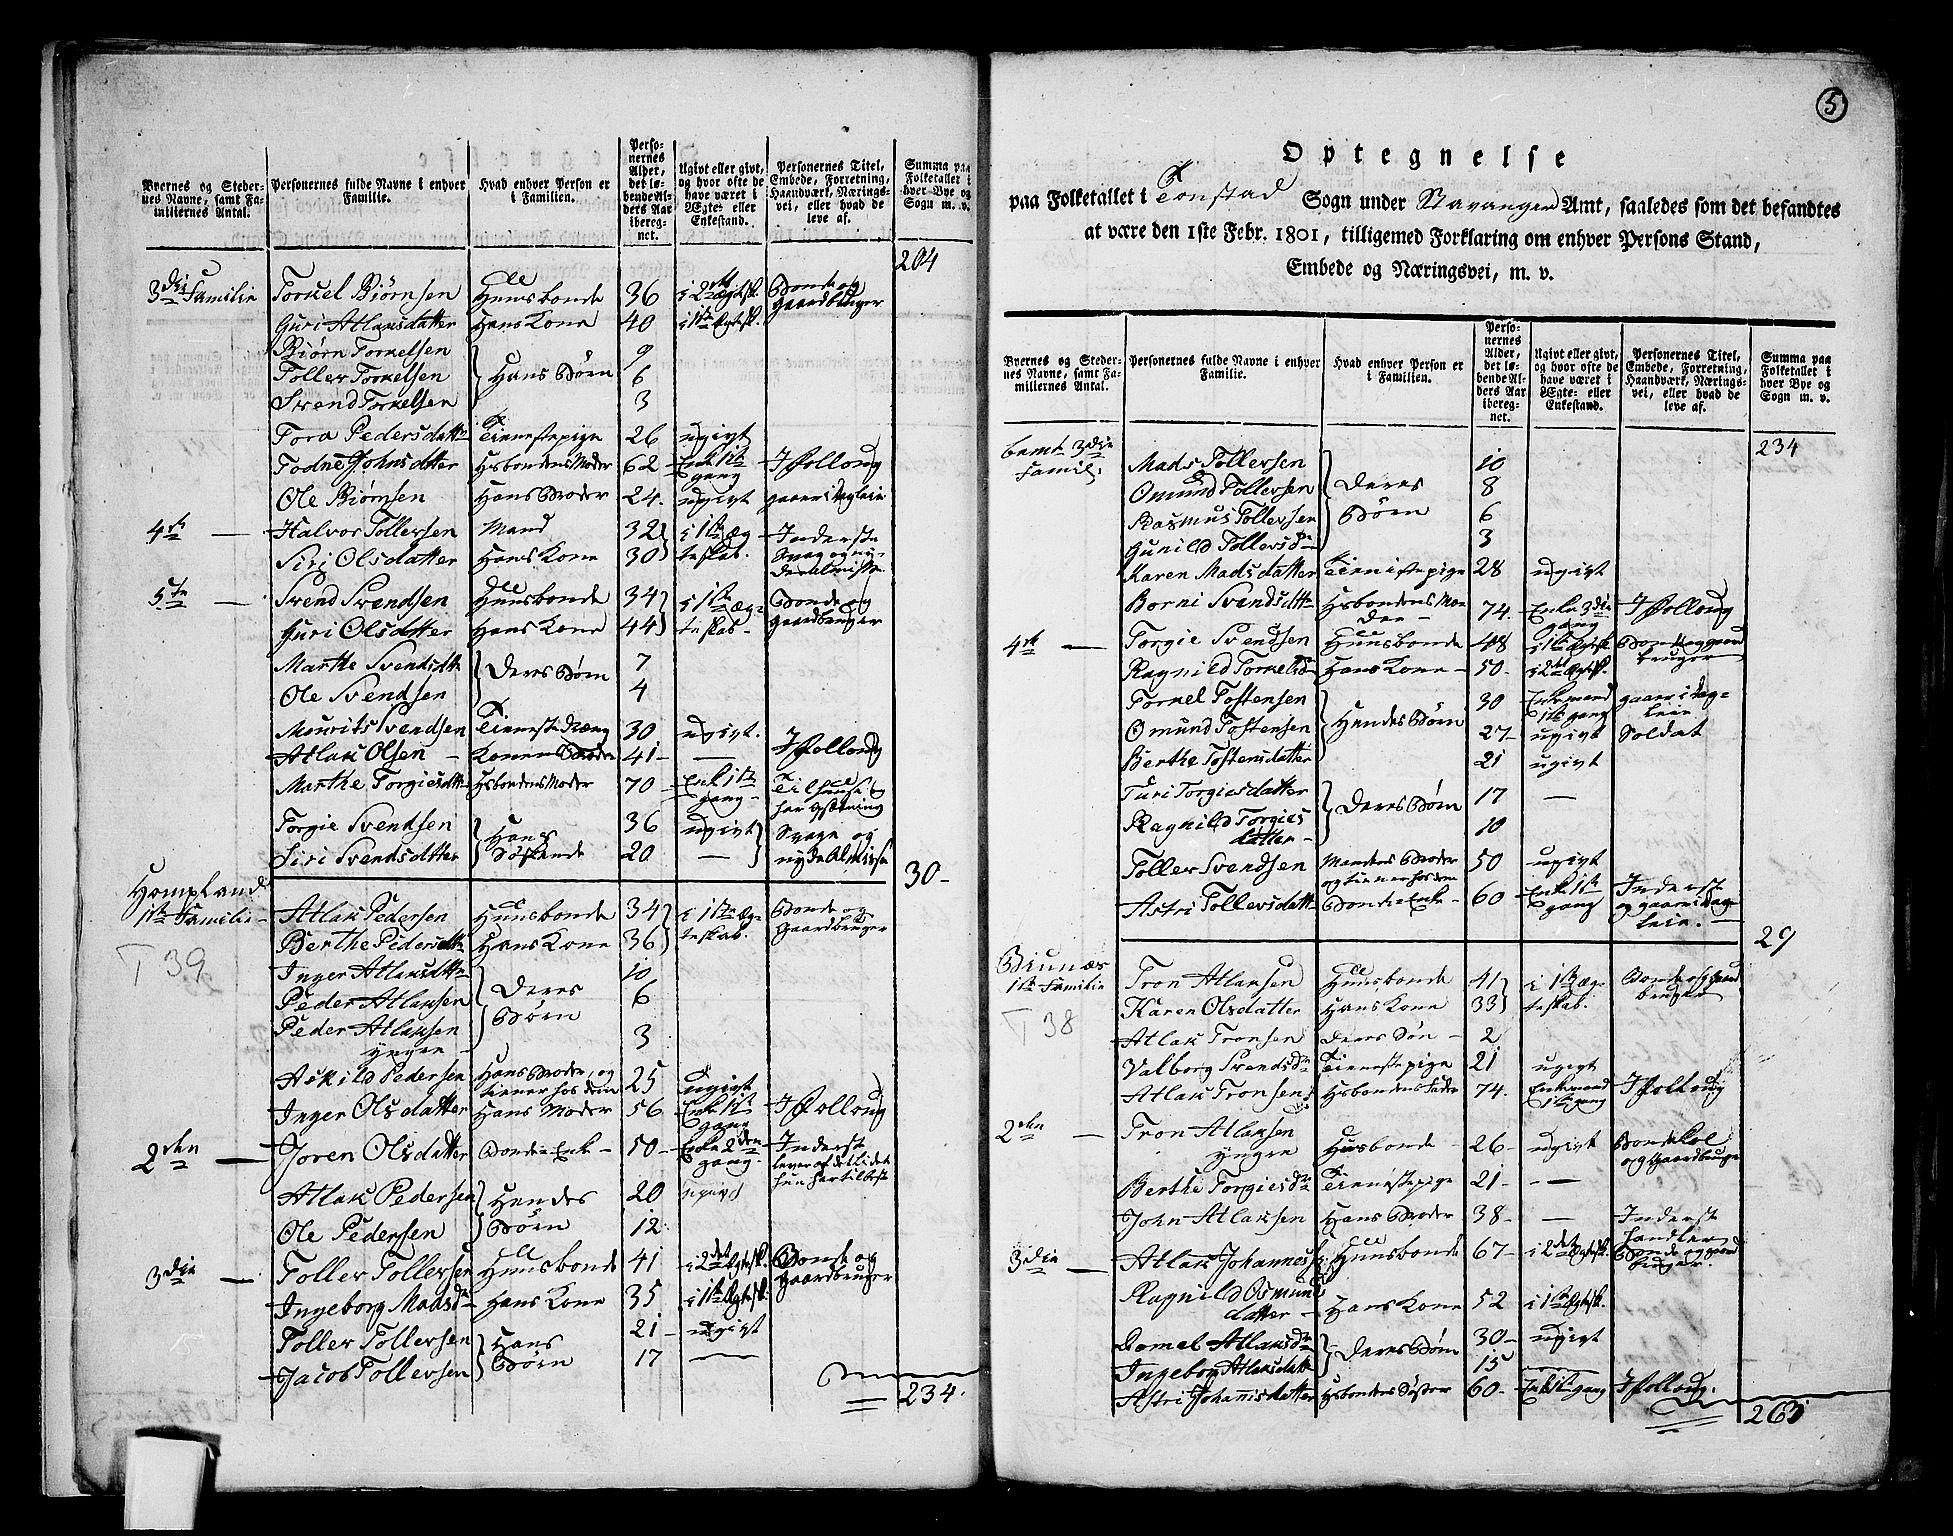 Byernes og Steder- nes Navne, samt Fa- miliernes Antal.
Personernes fulde Navne i enhver Familie.
Hvad enhver Person er i Familien.
Perso- nernes Alder, det lø- bende Al- ders Aar iberegnet.
Ugivt eller givt, og hvor ofte de have været i Ægte- eller Enkestand.
Personernes Titel, Embede, Forretning, Haandværk, Nærings- vei, eller hvad de leve af.
Summa paa Folketallet i hver Bye og Sogn m. v.
204
3die Familie Torkel Biørnsen Huusbonde 36 i 2det Ægtesk. Bonde og Gaardbruger
Guri Atlaksdatter Hans Kone 40 i 1ste Ægtesk.
Biørn Torkelsen 9
Toller Torkelsen Hans Børn 6
Svend Torkelsen 3
Tora Pedersdattr Tienestepige 26 ugivt
Todne Johnsdatter Hsbondens Moder 62 Enke 1ste gang Follaug
Ole Biørnsen Hans Broder 24 ugivt gaaer i Dagleie
4de — Halvor Tollersen Mand 32 i 1ste Æg- Inderste
Siri Olsdatter Hans Kone 30 teskab. Svag og ny- der Almisse
5te — Svend Svendsen Huusbonde 34 i 1ste Æg- Bonde og
Guri Olsdatter Hans Kone 44 teskab Gaardbruger
Marthe Svendsdtr 7
Ole Svendsen Deres Børn 4
Mourits Svendsen Tieneste Dreng 30 ugivt.
Atlak Olsen Konens Broder 41 — Follaug
Marthe Torgiesdattr Hsbondens Moder 70 Enke 1ste gang Til Huuse og
Torgie Svendsen Hans 36 ugivt Svage og
Siri Svendsdatter Søskende 20 — nyde Almisse
30
Hompland
1ste Familie Atlak Pedersen Huusbonde 34 i 1ste Æg- Bonde og
Berthe Pedersdtr Hans Kone 36 teskab. Gaardbruger
T 39
Inger Atlaksdtr 10
Peder Atlaksen Deres 6
Peder Atlaksen yngre Børn 3
Askild Pedersen Hans Broder, og tiener hos dem 25 ugivt
Inger Olsdatter Hans Moder 56 Enke 1ste gang Follaug
2den — Joren Olsdatter Bonde Enke 50 Enke 2den gang Inderst lever af det lidet hun har til beste
Atlak Pedersen Hendes 20 ugivt
Ole Pedersen Børn 12
3die — Toller Tollersen Huusbonde 41 i 2det Ægtesk. Bonde og Gaardbruger
Ingeborg Madsdr Hans Kone 35 i 1ste Ægtesk.
Toller Tollersen Hans 21 ugivt
Jacob Tollersen Børn 17 —
234.
5
Optegnelse
paa Folketallet i Tonstad Sogn under Stavanger Amt, saaledes som det befandtes
at være den 1ste Febr. 1801, tilligemed Forklaring om enhver Persons Stand,
Embede og Næringsvei, m. v.
Byernes og Steder- nes Navne, samt Fa- miliernes Antal.
Personernes fulde Navne i enhver Familie.
Hvad enhver Person er i Familien.
Perso- nernes Alder, det lø- bende Al- ders Aar iberegnet.
Ugivt eller givt, og hvor ofte de have været i Ægte- eller Enkestand.
Personernes Titel, Embede, Forretning, Haandværk, Nærings- vei, eller hvad de leve af.
Summa paa Folketallet i hver Bye og Sogn m. v.
234
bemt 3die Famil: Mads Tollersen 10
Omund Tollersen Deres 8
Rasmus Tollersen Børn 6
Gunild Tollersdr 3
Karen Madsdatter Tienistepige 28 ugivt
Borni Svendsdtr Hsbondens Mo- der 74. Enke 3die gang Follaug
4de — Torgie Svendsen Huusbonde 48 i 1ste Ægtesk. Bonde og gaard bruger
Ragnild Torkelsd Hans Kone 50 i 2det Ægtesk.
Torkel Tostensen 30 Enkemand 1ste gang gaaer i Dag- leie
Omund Tostensen Hendes Børn 27 ugivt Soldat
Berthe Tostensdatter 21 ugivt
Turi Torgiesdatter 17 —
Ragnild Torgies datter Deres Børn 10
Toller Svendsen Mandens Broder og tiener hos dem 50 ugivt
Astri Tollersdattr Bonde Enke 60 Enke 1ste gang Inderst og gaaer i Dag leie.
29
Biunæs
1ste Familie Tron Atlaksen Huusbonde 41 i 1ste Æg- Bonde og Gaard
Karen Olsdatter Hans Kone 33 teskab. bruger
T 38
Atlak Tronsen Deres Søn 2
Valborg Svendsdr Tienestepige 21 ugivt
Atlak Tronsen Hsbondens Fader 74. Enkemand 1ste gang Follaug
2den — Tron Atlaksen yngre Husbonde 26 ugivt
Berthe Torgiesdr Tienistepige 21 —
John Atlaksen Hans Broder 38 — Inderst handler
3die — Atlak Johanness: Huusbonde 67 i 2det Ægtesk. Bonde og gaard bruger.
Ragnild Osmund datter Hans Kone 52 i 1ste Ægtesk.
Domel Atlaksdr 30 ugivt
Ingeborg Atlaksdattr Deres Børn 15
Astri Johannisdatter Hsbondens Søster 60 Enke 1ste gang Follaug.
263